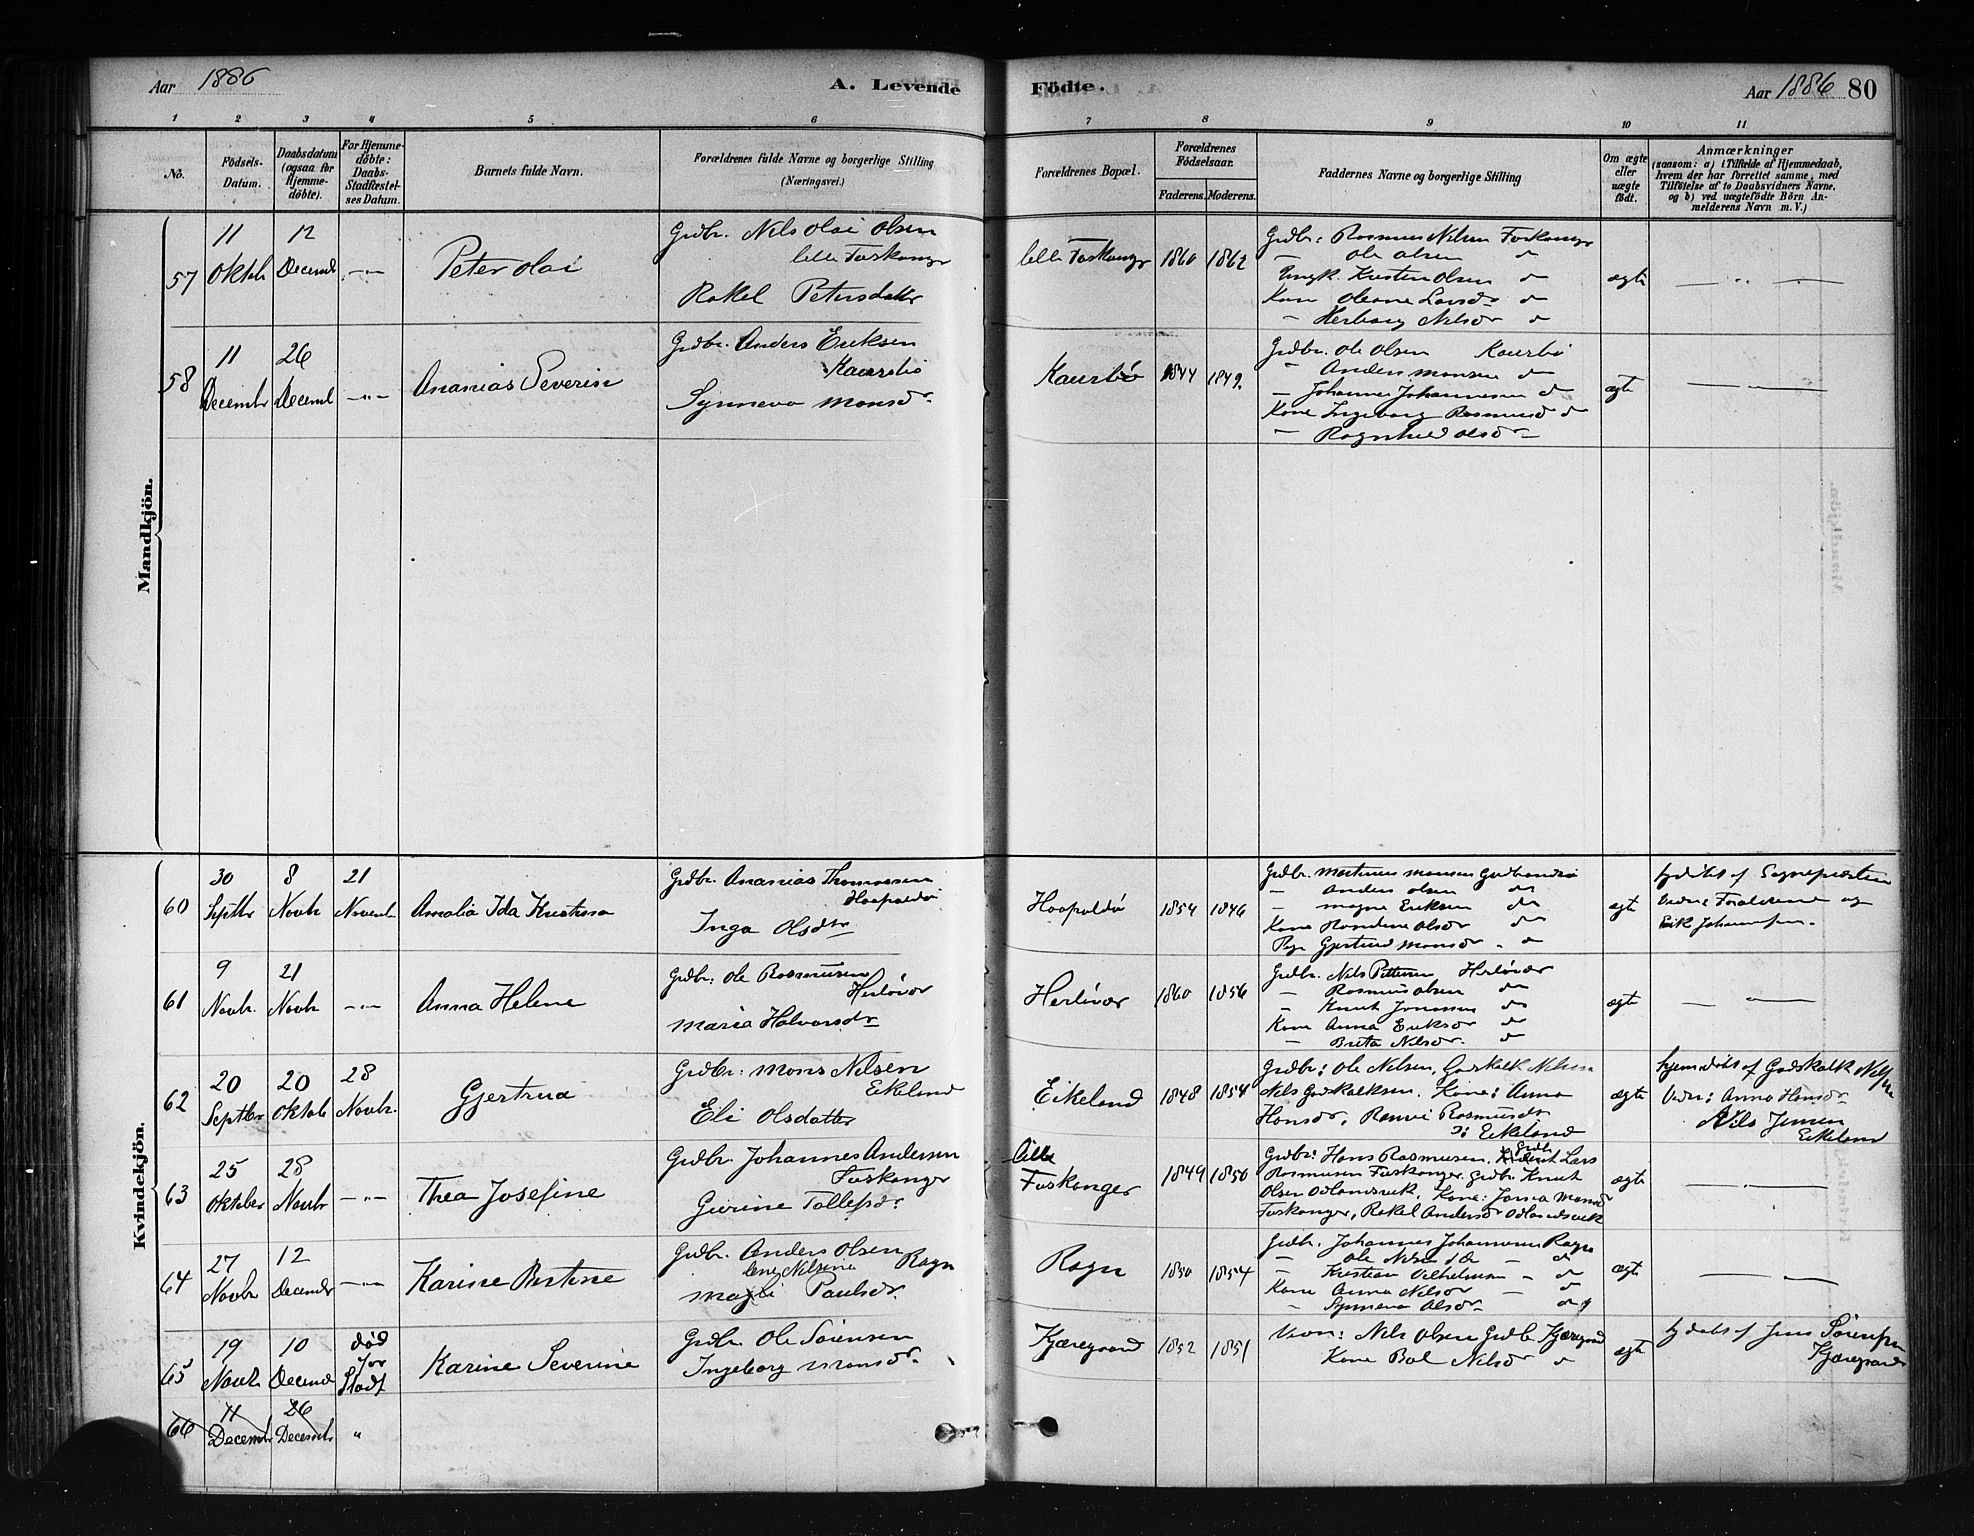 Aar 1886
A. Levende
Födte.
Aar 1886 80
1 2 3 4 5 6 7 8 9 10 11
No.
Födsels-
Datum.
Daabsdatum
(ogsaa for
Hjemme-
döbte).
For Hjemme-
döbte:
Daabs-
Stadfæstel-
ses Datum.
Barnets fulde Navn.
Forældrenes fulde Navne og borgerlige Stilling
(Næringsvei.)
Forældrenes Bopæl.
Forældrenes
Födselsaar.
Faderens. Moderens.
Faddernes Navne og borgerlige Stilling
Om ægte
eller
uægte
födt.
Anmærkninger
(saasom: a) i Tilfælde af Hjemmedaab,
hvem der har forrettet samme, med
Tilföielse af to Daabsvidners Navne,
og b) ved uægtefödte Börn An-
melderens Navn m. V.)
Mandkjön.
57
11
Oktbr
12
Decembr
Peter Olai
Grdbr. Nils Olai Olsen
lille Foskanger
Rakel Petersdatter
lille Foskangr
1860 1862
Grdbr: Rasmus Nilsen Foskangr
Ole Olsen do
Ungk. Kristen Olsen do
Kone Oleane Larsdr do
Herborg Nilsdr do
ægte
58
11
Decembr
26
Decembr
Ananias Severin
Grdbr. Anders Eriksen
Kaursbø
Synneva Monsdr.
Kaursbø
1844 1849.
Grdbr. Ole Olsen Kaursbø
Anders Monsen do
Johannes Johannesen do
Kone Ingeborg Rasmusd do
Ragnhild Olsdr
ægte
Kvindekjön.
60
30
Septbr
8
Novbr
21
Novembr
Amalia Ida Kristina
Grdbr. Ananias Thomassen
Inga Olsdtr
1854 1846
Grdbr. Martinus Monsen
Anders Olsen do
Magne Eriksen do
Kone Randine Olsdr do
Pige Gjertrud Monsdr. do
ægte
Vidne: Forældrene og
Erik Johannsen.
61
9
Novbr.
21
Novbr
Anna Helene
Grdbr: Ole Rasmussen
Herløvær
Maria Halvorsdr
Herløvær
1860 1856
Grdbr. Nils Pettersen Herløvær
Rasmus Olsen do
Knut Jonassen do
Kone Anna Eriksdr do
Brita Nilsdr. do
ægte
62
20
Septbr
20
Oktob
28
Novbr.
Gjertrud
Grdbr. Mons Nilsen
Eikeland
Eli Olsdatter
Eikeland
1848 1854
Grdbr: Ole Nilsen, Godskalk Nilsen
Nils Godskalksen. Kone: Anna
Hansdr, Ranvei Rasmusdr
Eikeland
ægte
hjemdøbt af Godskalk Nilsen
Vidn: Anna Hansdr
Nils Jensen
Eikeland
63
25
Oktober
28
Novbr
Thea Josefine
Grdbr Johannes Andersen
Foskanger
Gurine Tollefsdr.
Lille
Foskanger
1849 1850
Grdbr: Hans Rasmussen, Grdbr Lars
Rasmussen Foskanger, grdbr Knut
Olsen Odlandsvik. Kone: Monsdr
Foskanger, Rakel Andersdr Odlandsvik
ægte
64
27
Novbr
12
Decembr
Karine Bertine
Grdbr. Anders Olsen
Lene Nilsine Rogn
Magli Paulsdr.
Rogn
1850 1854
Grdbr. Johannes Johannesen Rogn
Ole Nilsen do
Kristian Vilhelmsen do
Kone Anna Nilsdr do
Synneva Olsdr do
ægte
65
19
Novbr
10
Decembr
død
før
Stadf
Karine Severine
Grdbr. Ole Sørensen
Ingeborg Monsdr.
Kjæregaard
1852 1851
Vidn: Nils Olsen Grdbr Kjæregaard
Kone Nilsdr do
ægte
hjdøbt af Jens Sørensen
Kjæregaard
66
11
Decembr
26
Decembr